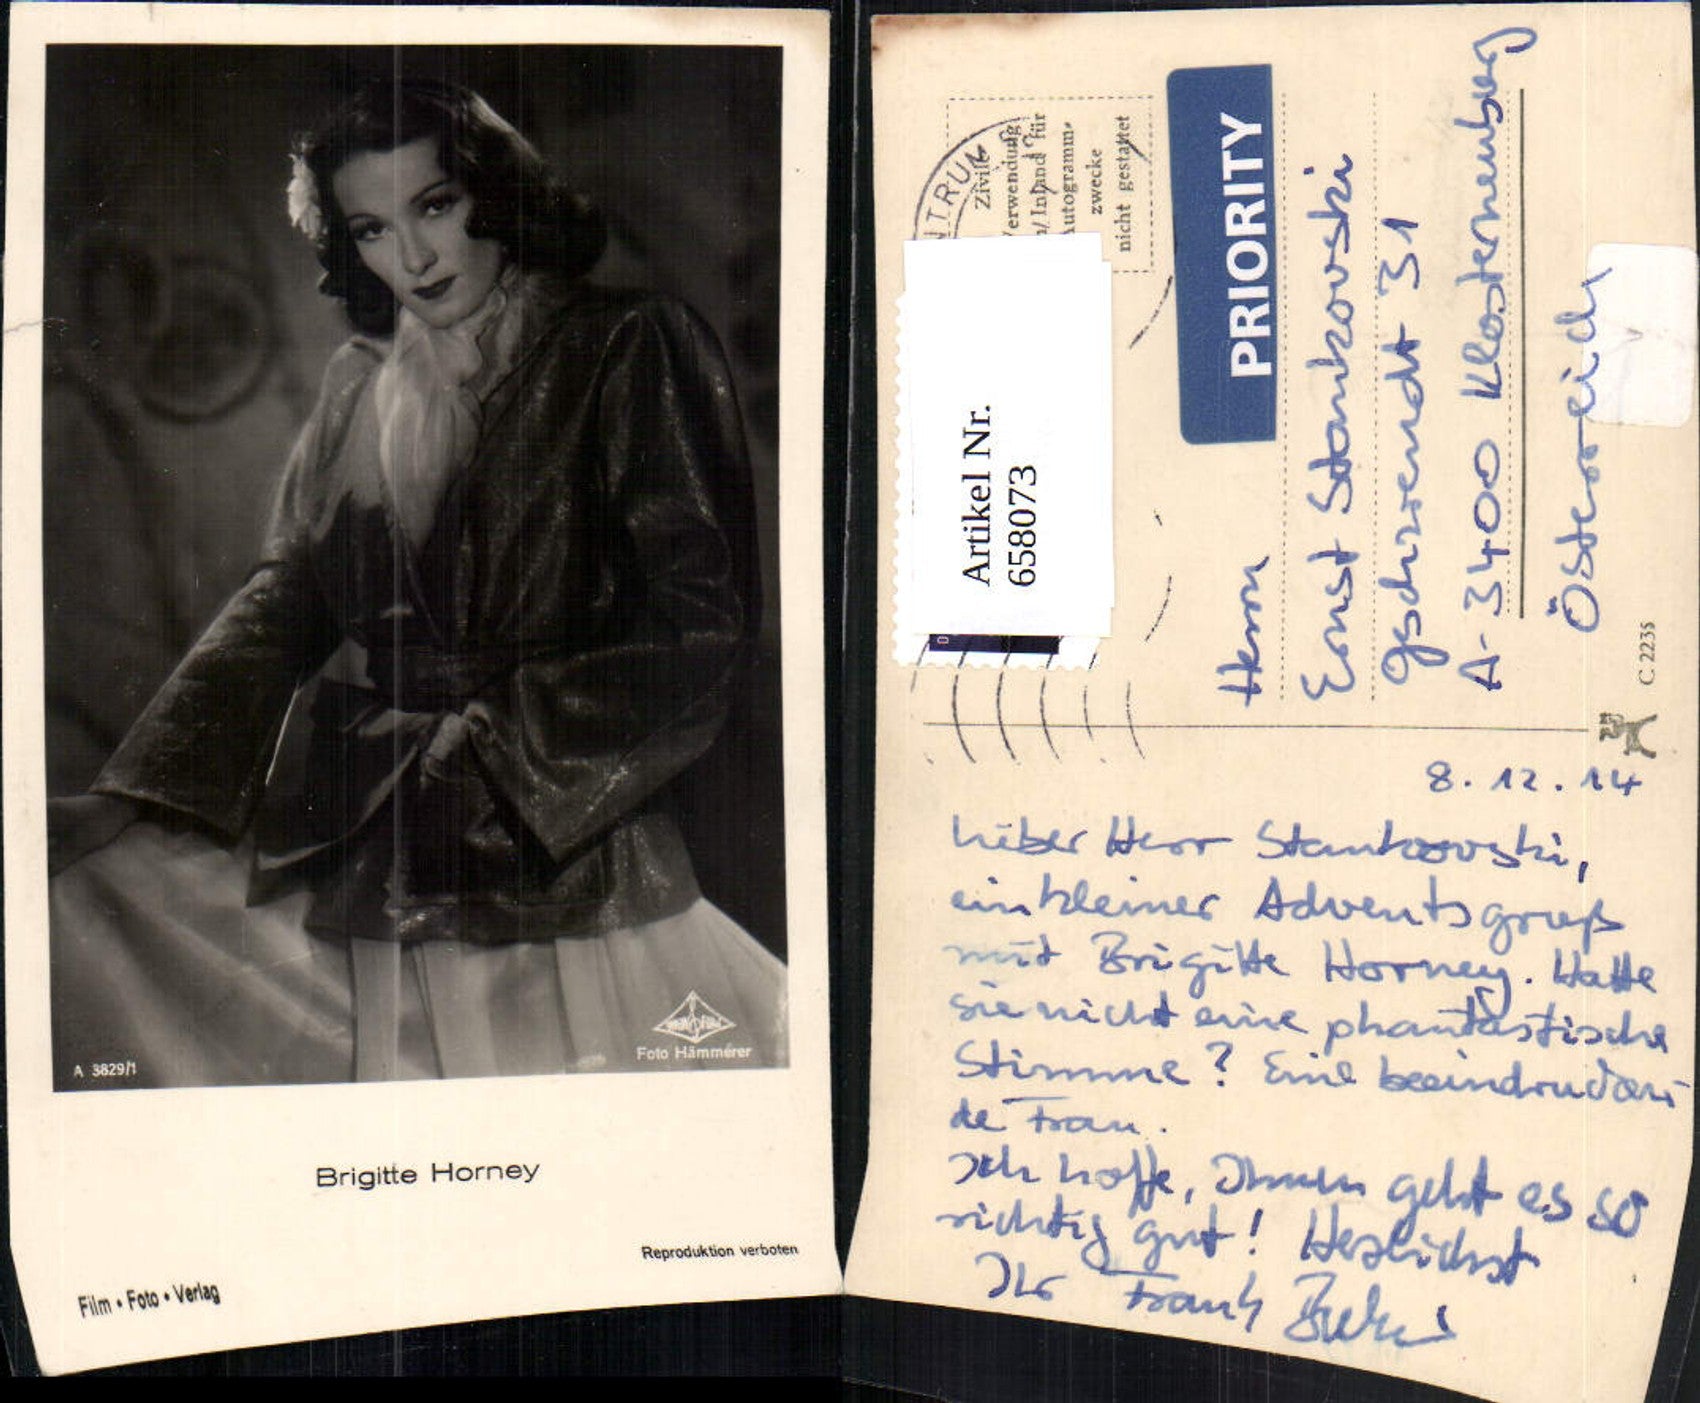 A 3829/1
Foto Hämmerer
Brigitte Horney
Reproduktion verboten
Film • Foto • Verlag
NTRUM
Zivile
Verwendung
Inland für
Autogramm-
zwecke
nicht gestattet
PRIORITY
Artikel Nr.
658073
Herrn
Ernst Stankovski
Gschwendt 31
A-3400 Klosterneuburg
Österreich
C 2235
8.12.14
Lieber Herr Stankovski,
ein kleiner Adventsgruß
mit Brigitte Horney. Hatte
sie nicht eine phantastische
Stimme? Eine beeindrucken-
de Frau.
Ich hoffe, Ihnen geht es so
richtig gut! Herzlichst
Ihr Frank